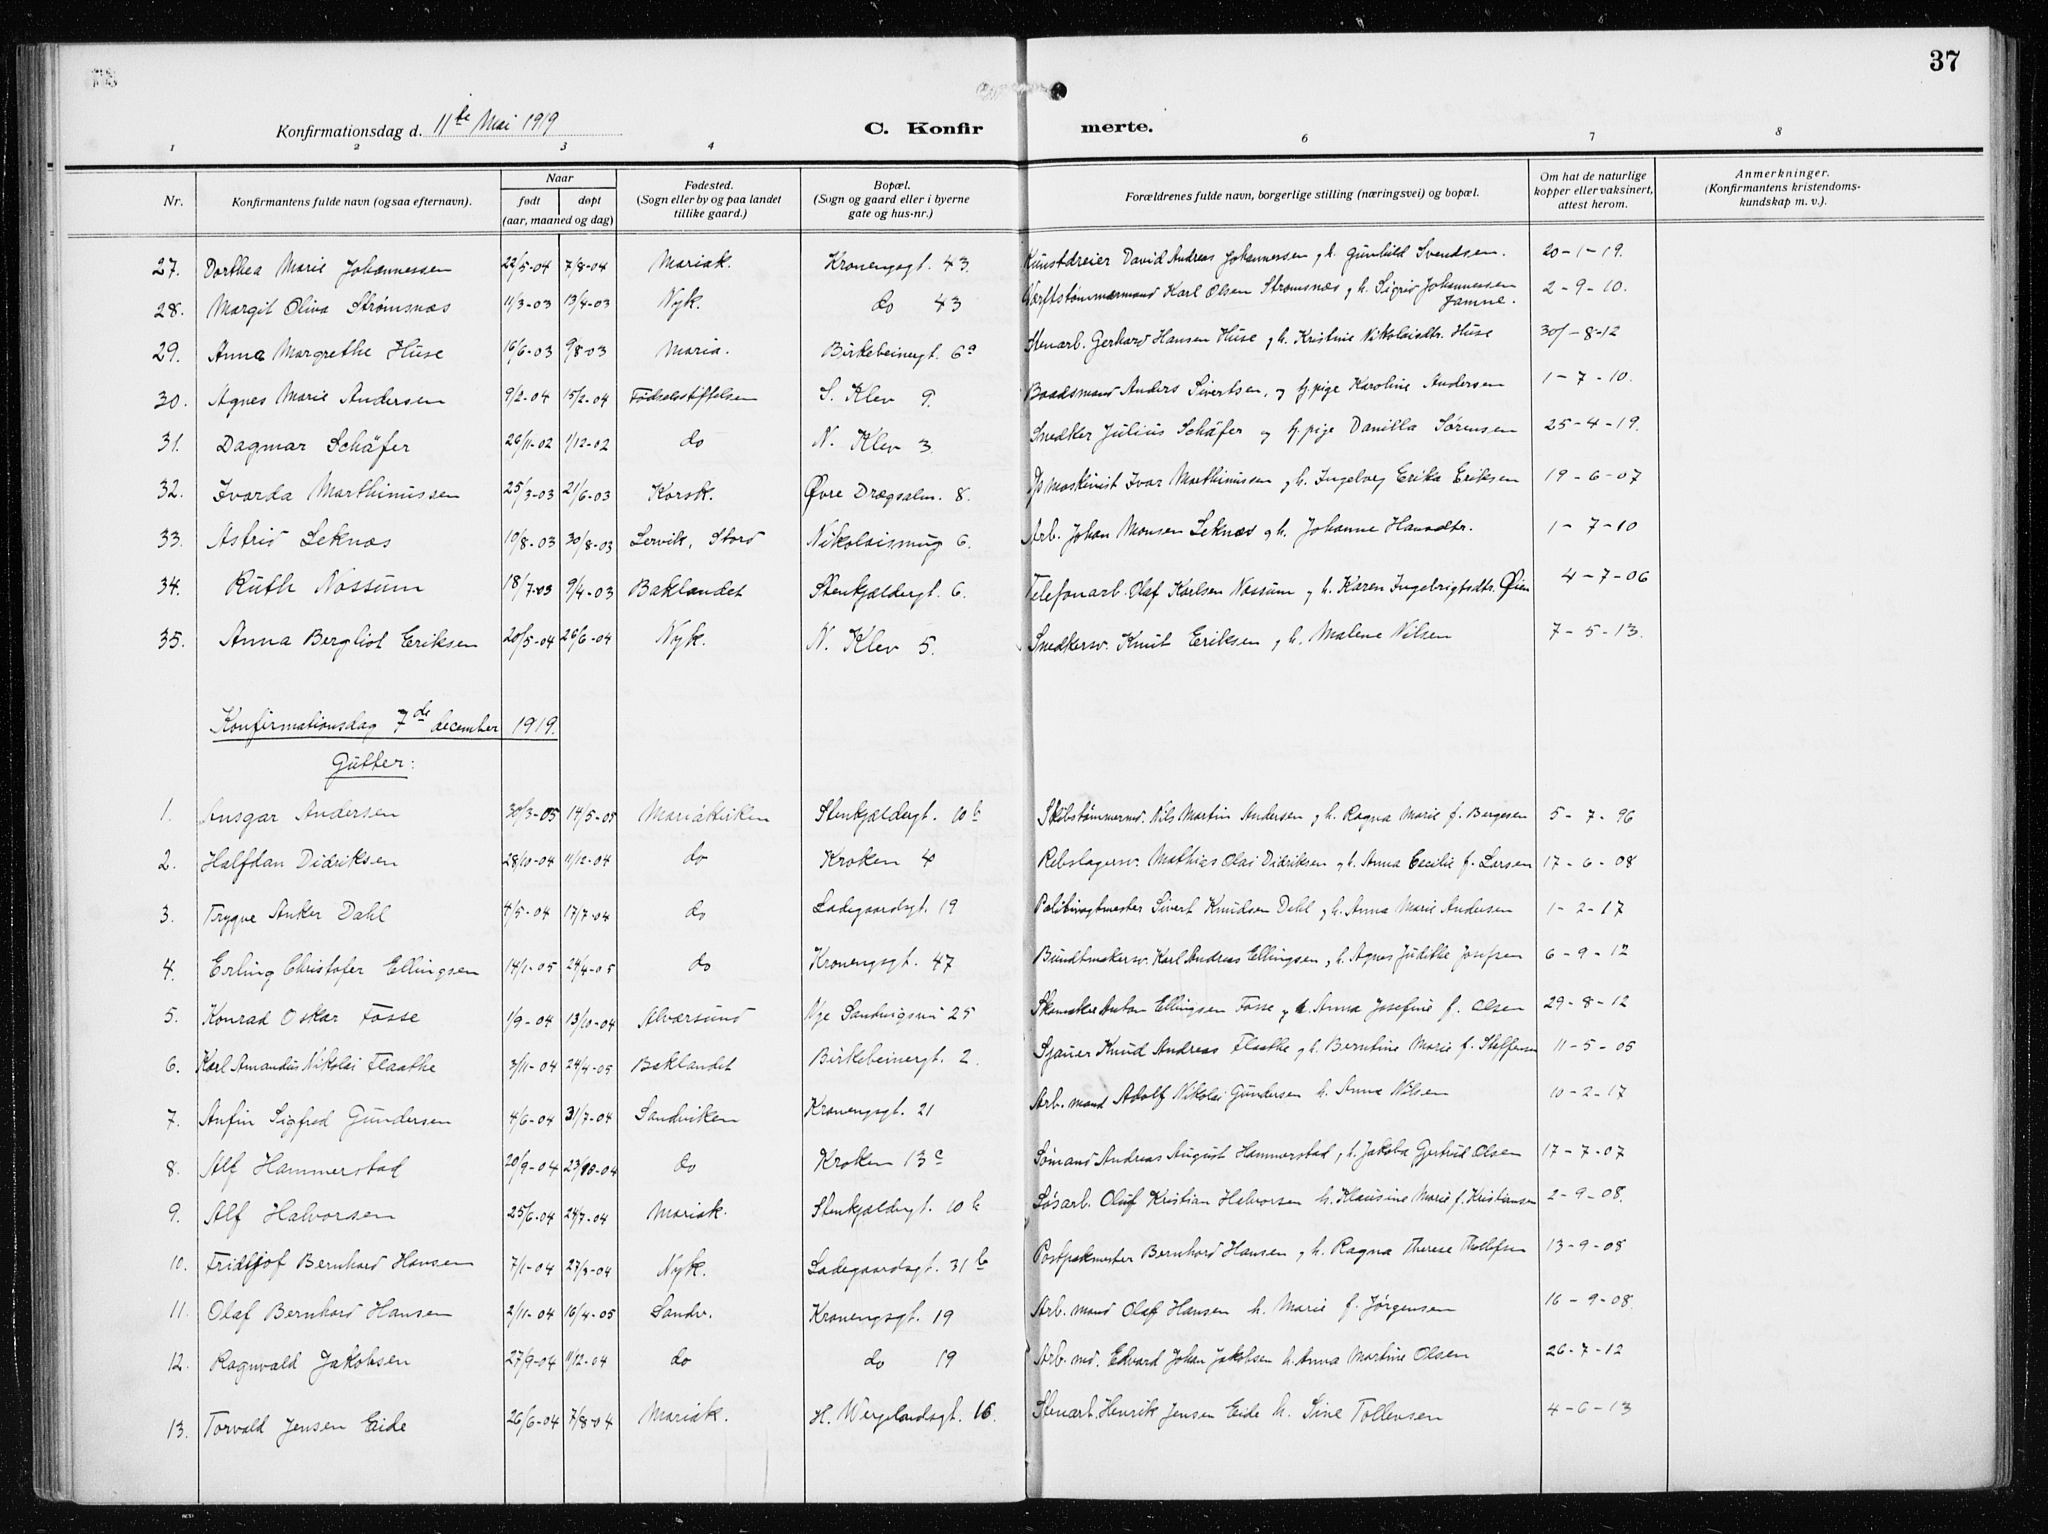 37
Konfirmationsdag d. 11te Mai 1919 C. Konfir merte.
1 2 3 4 6 7 8
Nr. Konfirmantens fulde navn (ogsaa efternavn). Naar født døpt (aar, maaned og dag) Fødested. (Sogn eller by og paa landet tillike gaard.) Bopæl. (Sogn og gaard eller i byerne gate og hus-nr.) Forældrenes fulde navn, borgerlige stilling (næringsvei) og bopæl. Om hat de naturlige kopper eller vaksinert, attest herom. Anmerkninger. (Konfirmantens kristendoms-kundskap m. v.).
27. Dorthea Marie Johannessen 22/5-04 7/8-04 Mariak. Kronengsgt. 43. Kunstdreier David Andreas Johannessen g h. Gunhild Svendsen. 20-1-19.
28. Margit Oliva Strømsnæs 11/3-03 13/4-03 Nyk. do 43 Værftstømmermand Karl Olsen Strømsnæs g h. Sigrid Johannessen Jamne. 2-9-10.
29. Anna Margrethe Huse 16/6-03 9/8-03 Maria. Birkebeinergt. 6a Stenarb. Gerhard Hansen Huse g h. Kristine Nikolaisdtr. Huse 30/-8-12
30. Agnes Marie Andersen 9/2-04 15/2-04 Fødselsstiftelsen S. Klev 9. Baadsmand Anders Sivertsen, og tj.pige Karoline Andersen 1-7-10.
31. Dagmar Schäfer 26/11-02 1/12-02 do N. Klev 3 Snedker Julius Schäfer og tj.pige Danilla Sørensen 25-4-19.
32. Ivarda Marthinussen 25/3-03 21/6-03 Korsk. Øvre Drægsalm. 8. maskinist Ivar Marthinussen g h. Ingeborg Erika Eriksen 19-6-07
33. Astrid Leknæs 10/8-03 30/8-03 Lervik, Stord Nikolaismug 6. Arb. Johan Monsen Leknæs g h. Johanne Hansdtr. 1-7-10
34. Ruth Nossum 18/7-03 9/4-03 Baklandet Stenkjældergt. 6. Telefonarb. Olaf Karlsen Nossum g h. Karen Ingebrigtsdtr. Øien 4-7-06
35. Anna Bergliot Eriksen 20/5-04 26/6-04 Nyk. N. Klev 5. Snedkersv. Knut Eriksen g h. Malene Nilsen 7-5-13.
Konfirmationsdag 7de december 1919.
Gutter:
1. Ansgar Andersen 30/3-05 14/5-05 Mariakirken Stenkjældergt. 10b Skibstømmermd. Nils Martin Andersen g h. Ragna Marie f. Bergesen 5-7-96
2. Halfdan Didriksen 28/10-04 11/12-04 do Kroken 4 Rebslagersv. Mathias Olai Didriksen g h. Anna Cecilie f. Larsen 17-6-08
3. Trygve Anker Dahl 4/5-04 17/7-04 do Ladegaardsgt. 19 Politivagtmester Sivert Knudsen Dahl g h. Anna Marie Andersen 1-2-17
4. Erling Christofer Ellingsen 14/1-05 24/4-05 do Kronengsgt. 47 Bundtmakersv. Karl Andreas Ellingsen g h. Agnes Judithe Josefsen 6-9-12
5. Konrad Oskar Fosse 1/9-04 13/10-04 Alværsund Nye Sandvigsvei 25 Skomaker Anton Ellingsen Fosse g h. Anna Josefine f. Olsen 29-8-12
6. Karl Amandus Nikolai Flaathe 3/11-04 24/4-05 Baklandet Birkebeinergt. 2. Sjauer Knud Andreas Flaathe g h. Berntine Marie f. Steffensen 11-5-05
7. Anfin Sigfred Gundersen 4/6-04 31/7-04 Sandviken Kronengsgt. 21 Arb.mand Adolf Nikolai Gundersen h. Anna Nilsen 10-2-17
8. Alf Hammerstad 20/9-04 23/10-04 do Kroken 13c Sømand Andreas August Hammerstad, h. Jakoba Gertrud Olsen 17-7-07
9. Alf Halvorsen 25/6-04 24/7-04 Mariak. Stenkjældergt. 10b Løsarb. Oluf Kristian Halvorsen h. Klausine Marie f. Kristiansen 2-9-08.
10. Fridtjof Bernhard Hansen 7/1-04 27/3-04 Nyk. Ladegaardsgt. 31b Postpakmester Bernhard Hansen g h. Ragna Therese Thollfsen 13-9-08
11. Olaf Bernhard Hansen 2/11-04 16/4-05 Sandv. Kronengsgt. 19 Arb.mand Olaf Hansen h. Marie f. Jørgensen 16-9-08.
12. Ragnvald Jakobsen 27/9-04 11/12-04 do do 19 Arb.md. Edvard Johan Jakobsen h. Anna Martine Olsen 26-7-12
13. Torvald Jensen Eide 26/6-04 7/8-04 Mariak. H. Wergelandsgt. 16. Stenarb. Henrik Jensen Eide h. Sine Tollevsen 4-6-13